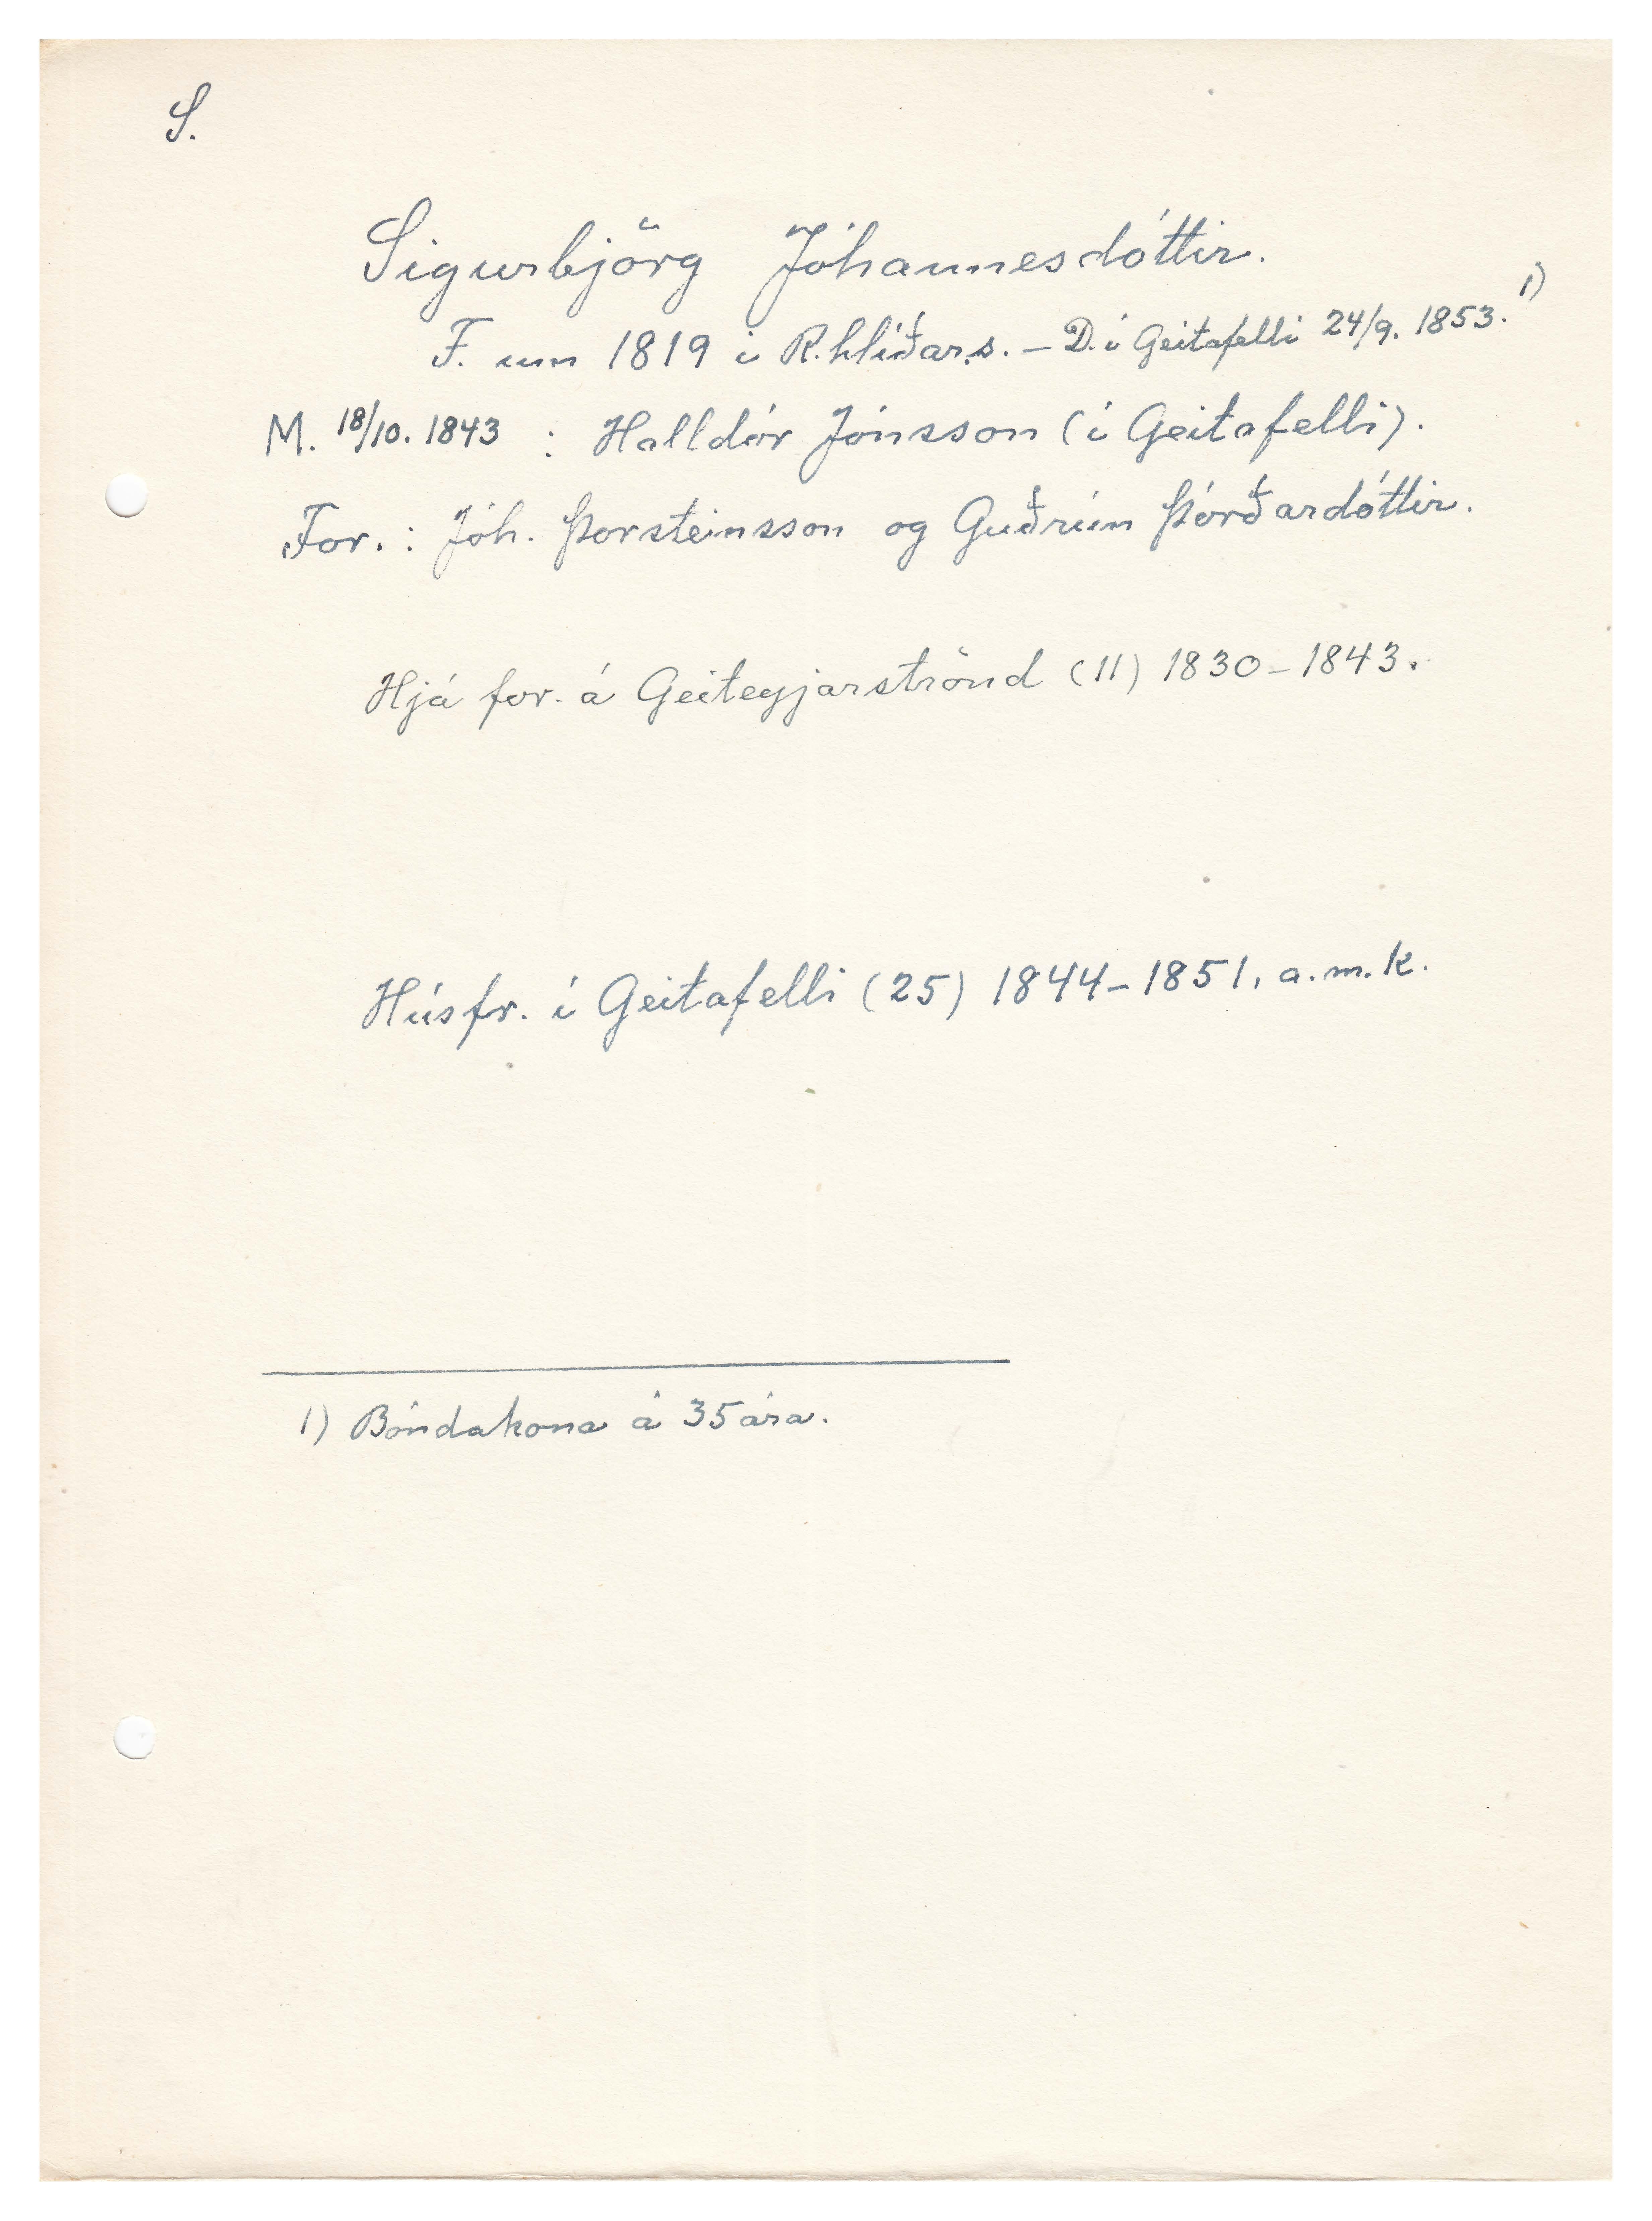 S.
Sigurbjörg Jóhannesdóttir.
F. um 1819 í R.hlíðar.s. – D. í Geitafelli 24/9. 1853. 1)
M. 18/10. 1843 : Halldór Jónsson (í Geitafelli).
For. : Jóh. Þorsteinsson og Guðrún Þórðardóttir.
Hjá for. á Geiteyjarströnd (11) 1830–1843.
Húsfr. í Geitafelli (25) 1844–1851, a.m.k.
1) Bóndakona á 35 ára.